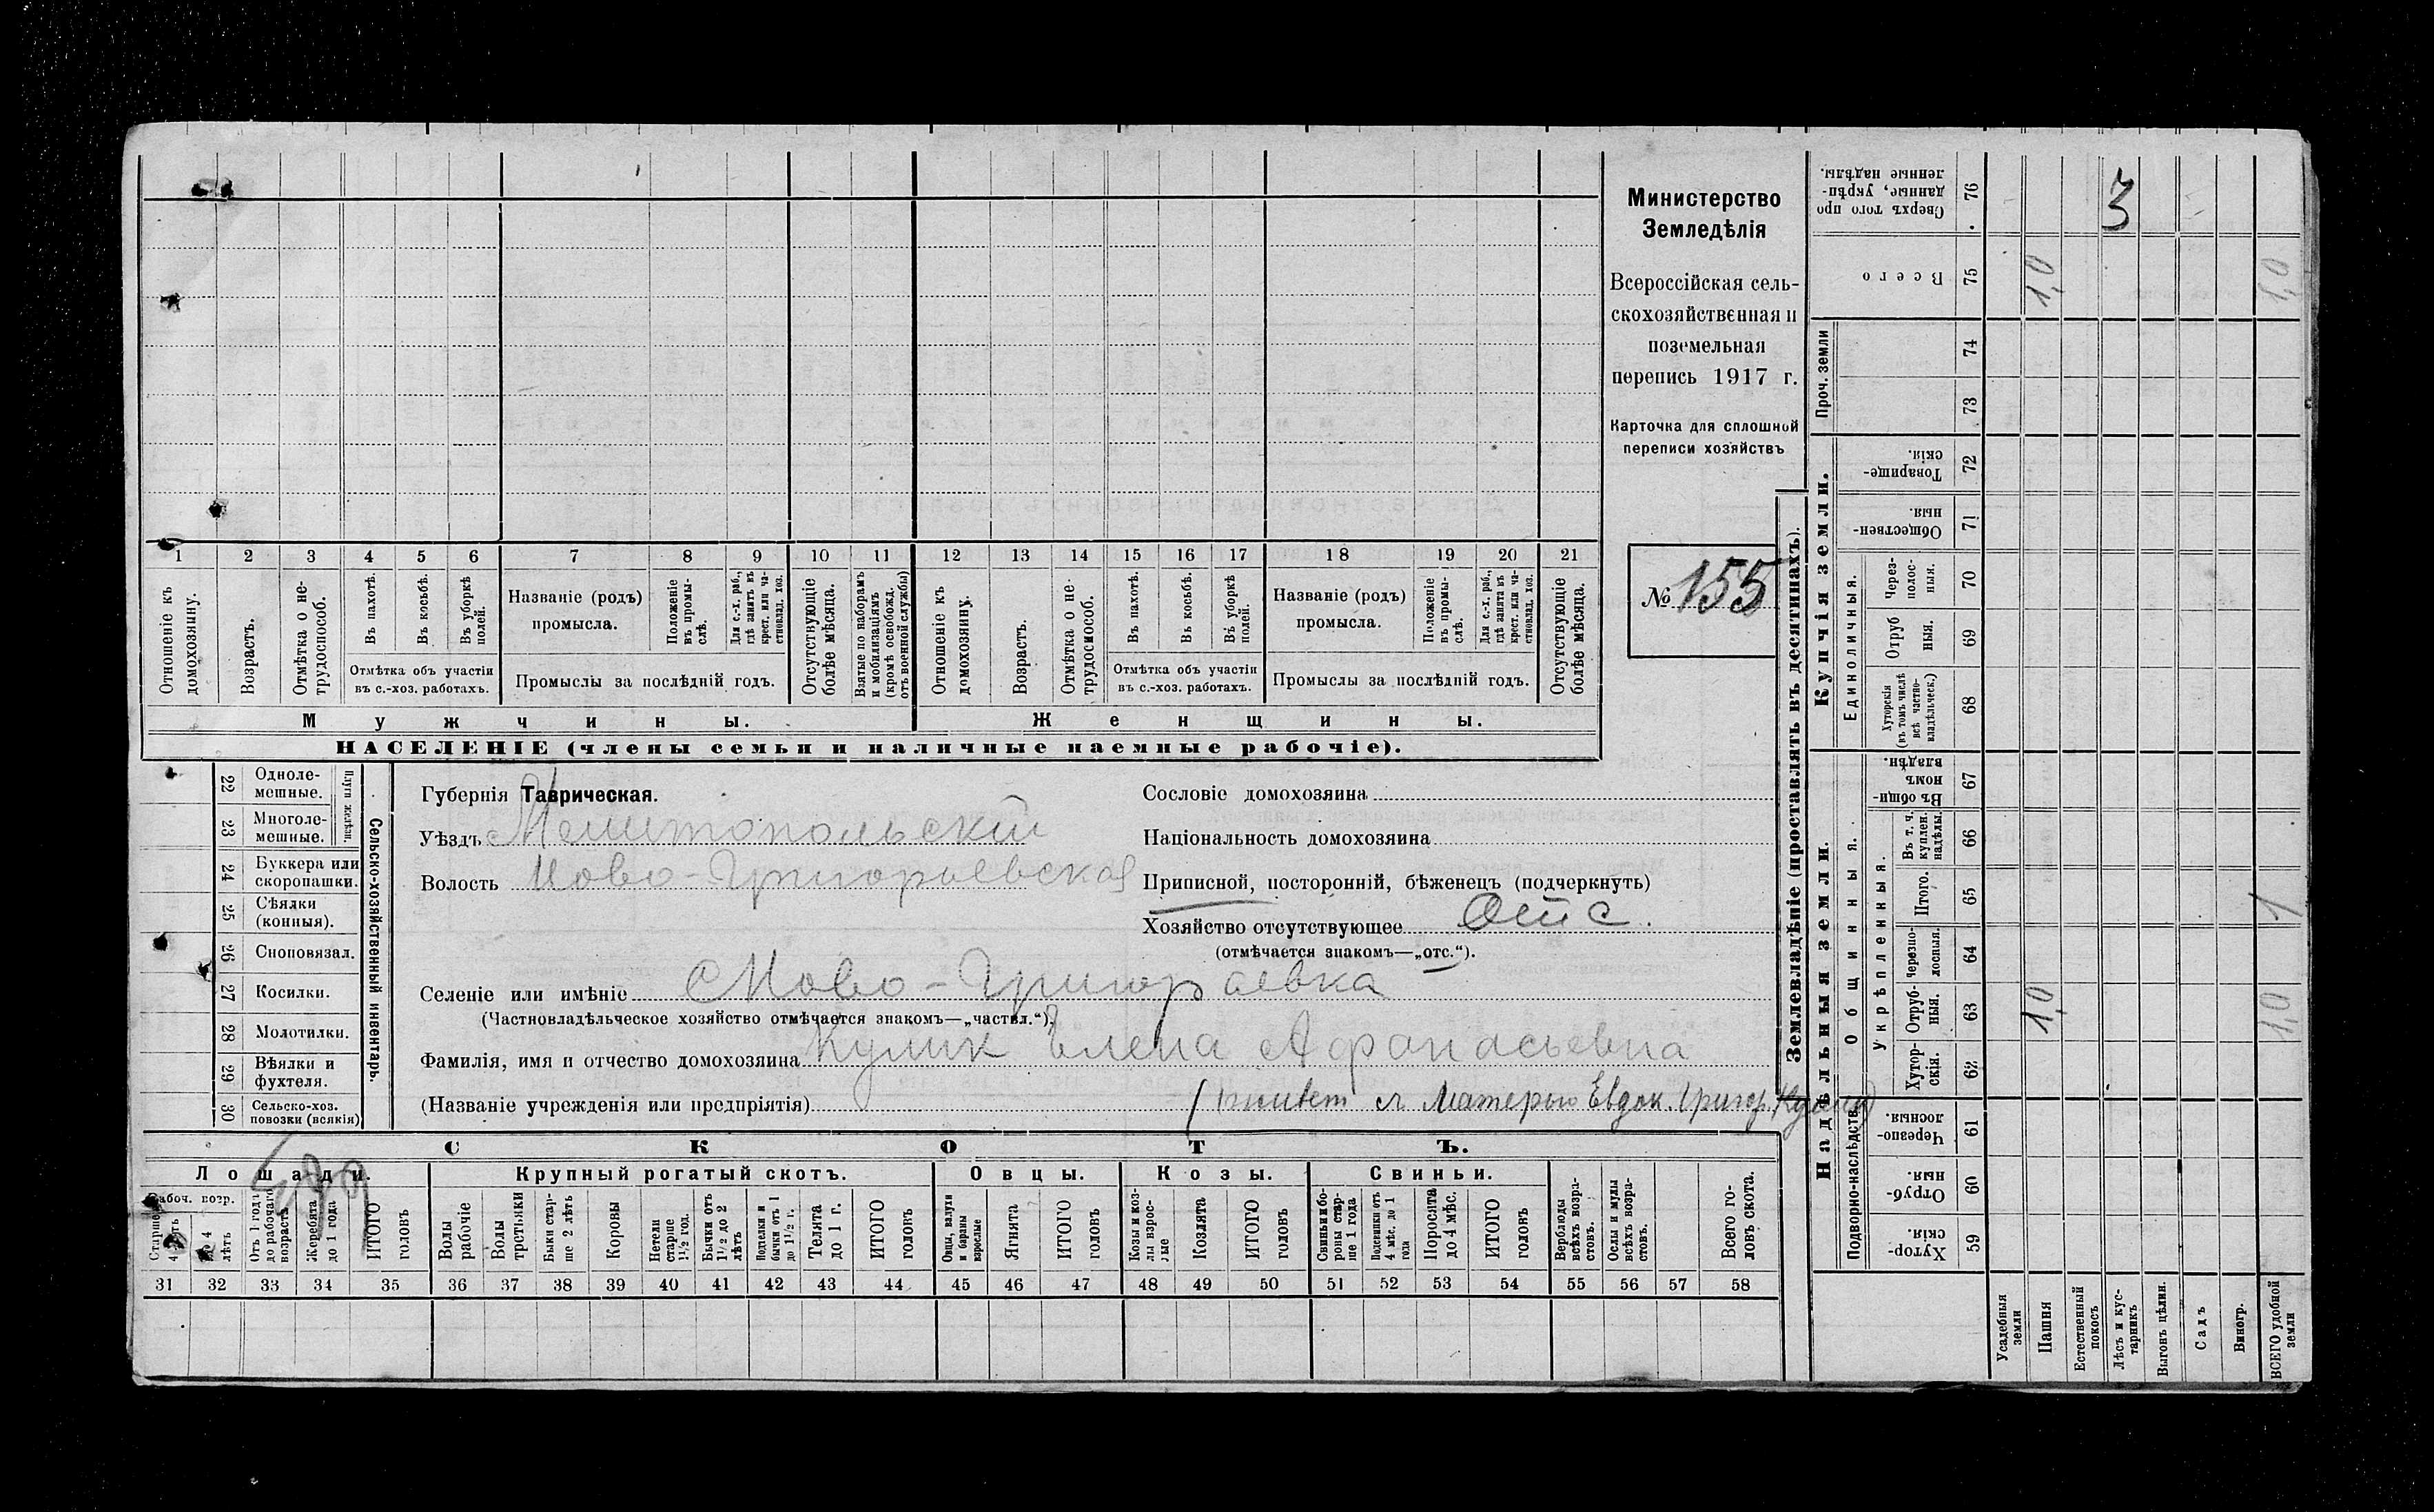 Министерство
Земледѣлія
Всероссійская сель-
скохозяйственная и
поземельная
перепись 1917 г.
Карточка для сплошной
переписи хозяйствъ
№ 155
1 2 3 4 5 6 7 8 9 10 11 12 13 14 15 16 17 18 19 20 21
Отношеніе къ домохозяину.
Возрастъ.
Отмѣтка о не-трудоспособ.
Въ пахотѣ.
Въ косьбѣ.
Въ уборкѣ полей.
Отмѣтка объ участіи
въ с.-хоз. работахъ.
Названіе (родъ)
промысла.
Положеніе въ промы-слѣ.
Для с.-х. раб., гдѣ занятъ въ крест. или ча-стновлад. хоз.
Промыслы за послѣдній годъ.
Отсутствующіе болѣе мѣсяца.
Взятые по наборамъ и мобилизаціямъ (кромѣ освобожд. отъ военной службы)
Отношеніе къ домохозяину.
Возрастъ.
Отмѣтка о не-трудоспособ.
Въ пахотѣ.
Въ косьбѣ.
Въ уборкѣ полей.
Отмѣтка объ участіи
въ с.-хоз. работахъ.
Названіе (родъ)
промысла.
Положеніе въ промы-слѣ.
Для с.-х. раб., гдѣ занята въ крест. или ча-стновлад. хоз.
Промыслы за послѣдній годъ.
Отсутствующіе болѣе мѣсяца.
Мужчины.
Женщины.
НАСЕЛЕНІЕ (члены семьи и наличные наемные рабочіе).
22 Одноле-мешные.
23 Многоле-мешные.
Плуги желѣзн.
24 Буккера или скоропашки.
25 Сѣялки (конныя).
26 Сноповязал.
27 Косилки.
28 Молотилки.
29 Вѣялки и фухтеля.
30 Сельско-хоз. повозки (всякія)
Сельско-хозяйственный инвентарь.
Губернія Таврическая.
Уѣздъ Мелитопольскій
Волость Ново-Григорьевская
Сословіе домохозяина
Національность домохозяина
Приписной, посторонній, бѣженецъ (подчеркнуть)
Хозяйство отсутствующее Отс.
(отмѣчается знакомъ—„отс.“).
Селеніе или имѣніе Ново-Григорьевка
(Частновладѣльческое хозяйство отмѣчается знакомъ—„частвл.“).
Фамилія, имя и отчество домохозяина Кулик Елена Афанасьевна
(Названіе учрежденія или предпріятія) (живет с матерью Евдок. Григор. Кулик)
СКОТЪ.
Лошади.
Крупный рогатый скотъ.
Овцы.
Козы.
Свиньи.
Рабоч. возр.
Старше 4 лѣтъ
До 4 лѣтъ
Отъ 1 года до рабочаго возраста
Жеребята до 1 года
ИТОГО головъ
Волы рабочіе
Волы третьяки
Быки стар-ше 2 лѣтъ
Коровы
Нетели старше 1½ год.
Бычки отъ 1½ до 2 лѣтъ
Подтелки и бычки отъ 1 до 1½ г.
Телята до 1 г.
ИТОГО головъ
Овцы, валухи и бараны взрослые
Ягнята
ИТОГО головъ
Козы и коз-лы взрос-лые
Козлята
ИТОГО головъ
Свиньи и бо-ровы стар-ше 1 года
Подсвинки отъ 4 мѣс. до 1 года
Поросята до 4 мѣс.
ИТОГО головъ
Верблюды всѣхъ возра-стовъ.
Ослы и мулы всѣхъ возра-стовъ.
Всего го-ловъ скота.
31 32 33 34 35 36 37 38 39 40 41 42 43 44 45 46 47 48 49 50 51 52 53 54 55 56 57 58
Землевладѣніе (проставлять въ десятинахъ).
Надѣльныя земли.
Купчія земли.
Проч. земли
Подворно-наслѣдств.
Общинныя.
Укрѣпленныя.
Единоличныя.
Сверхъ того про-данные, укрѣп-ленные надѣлы. 76 3
Всего 75 1,0 1,0
74
73
Товарище-скія. 72
Обществен-ныя. 71
Через-полос-ныя. 70
Отруб-ныя. 69
Хуторскія (въ томъ числѣ всѣ частно-владѣльческ.) 68
Въ общин-номъ владѣн. 67
Въ т. ч. куплен. надѣлы. 66
Итого. 65 1
Черезпо-лосныя. 64
Отруб-ныя. 63 1,0 1,0
Хутор-скія. 62
Черезпо-лосныя. 61
Отруб-ныя. 60
Хутор-скія. 59
Усадебныя земли
Пашня
Естественный покосъ
Лѣсъ и кус-тарникъ
Выгонъ цѣлин.
Садъ
Виногр.
ВСЕГО удобной земли